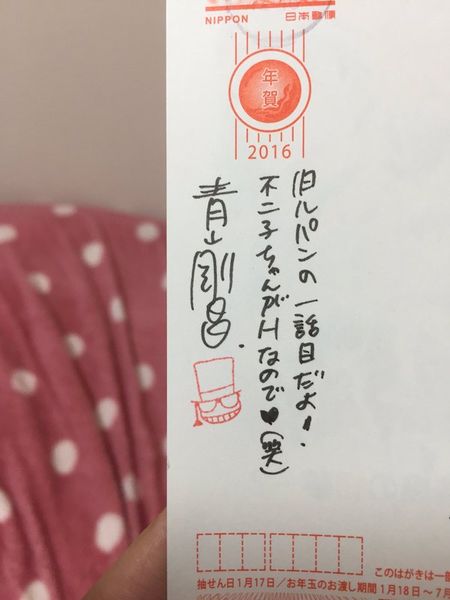 NIPPON 日本郵便
年賀
2016
旧ルパンの一話目だよ!
不二子ちゃんがHなので♥(笑)
青山剛昌.
このはがきは一
抽せん日1月17日/お年玉のお渡し期間1月18日〜7